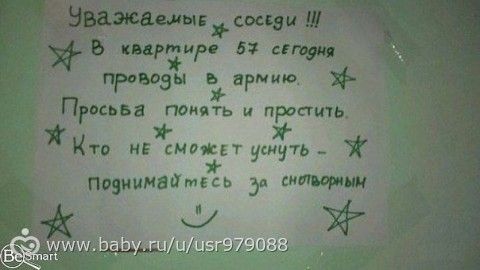 Уважаемые соседи !!!
В квартире 57 сегодня
проводы в армию.
Просьба понять и простить.
Кто не сможет уснуть -
поднимайтесь за снотворным
www.baby.ru/u/usr979088
Be Smart